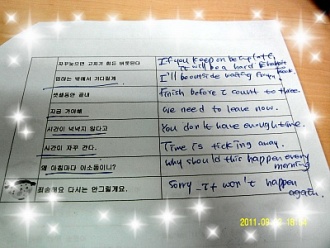 자꾸늦으면 고치기 힘든 버릇된다 If you keep on being late,
it will be a hard habit to break.
밖에는 밖에서 기다릴게 I'll be outside waiting for you.
셋셀동안 끝내 finish before I count to three.
지금 가야해 we need to leave now.
시간이 넉넉치 않다고 You don't have enough time.
시간이 자꾸 간다. Time is ticking away.
왜 아침마다 이소동이니? why should this happen every
morning
죄송해요 다시는 안그럴게요. Sorry, It won't happen
again.
2011.09